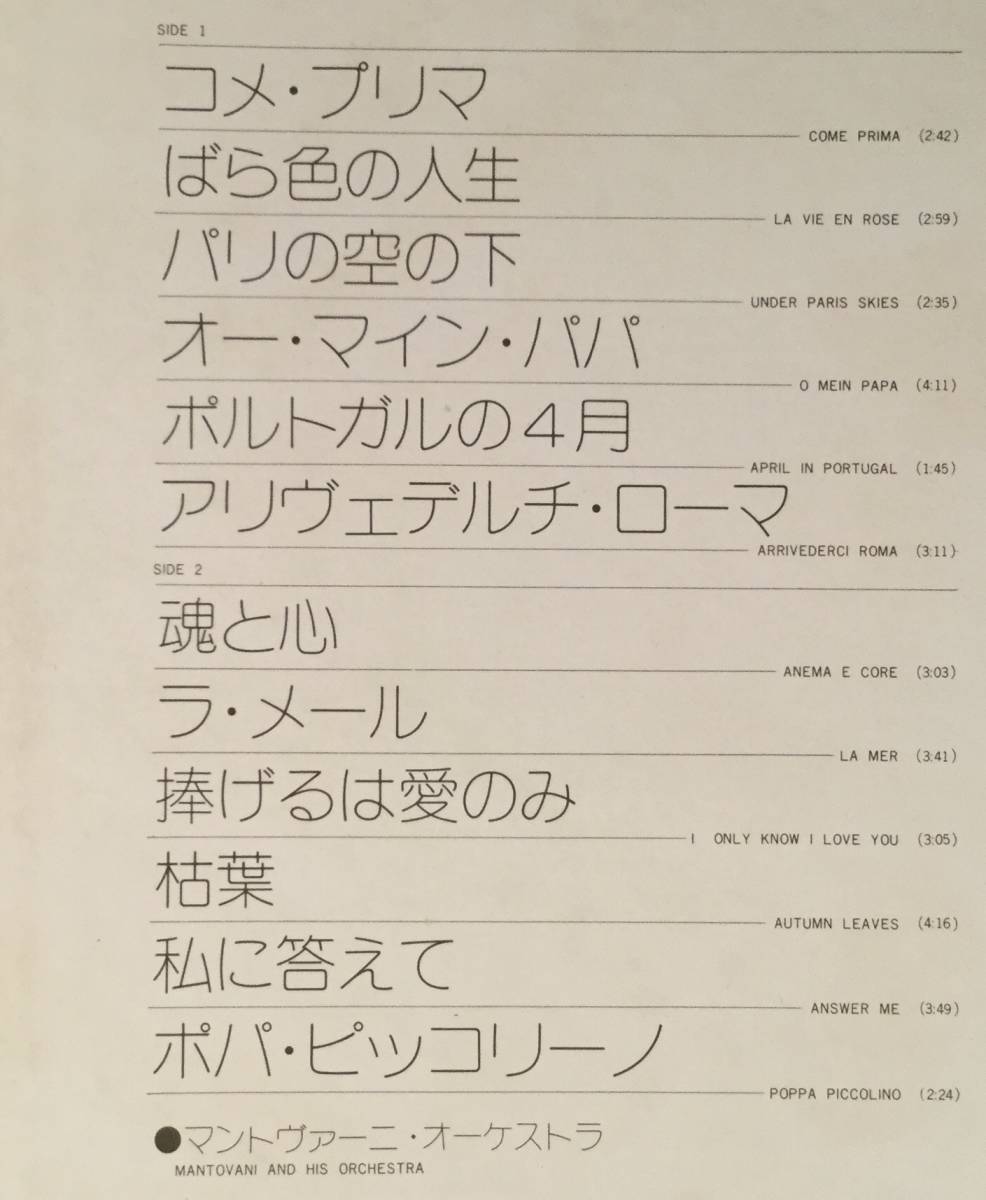 SIDE 1
コメ・プリマ
COME PRIMA (2:42)
ばら色の人生
LA VIE EN ROSE (2:59)
パリの空の下
UNDER PARIS SKIES (2:35)
オー・マイン・パパ
O MEIN PAPA (4:11)
ポルトガルの4月
APRIL IN PORTUGAL (1:45)
アリヴェデルチ・ローマ
ARRIVEDERCI ROMA (3:11)
SIDE 2
魂と心
ANEMA E CORE (3:03)
ラ・メール
LA MER (3:41)
捧げるは愛のみ
I ONLY KNOW I LOVE YOU (3:05)
枯葉
AUTUMN LEAVES (4:16)
私に答えて
ANSWER ME (3:49)
ポパ・ピッコリーノ
POPPA PICCOLINO (2:24)
●マントヴァーニ・オーケストラ
MANTOVANI AND HIS ORCHESTRA